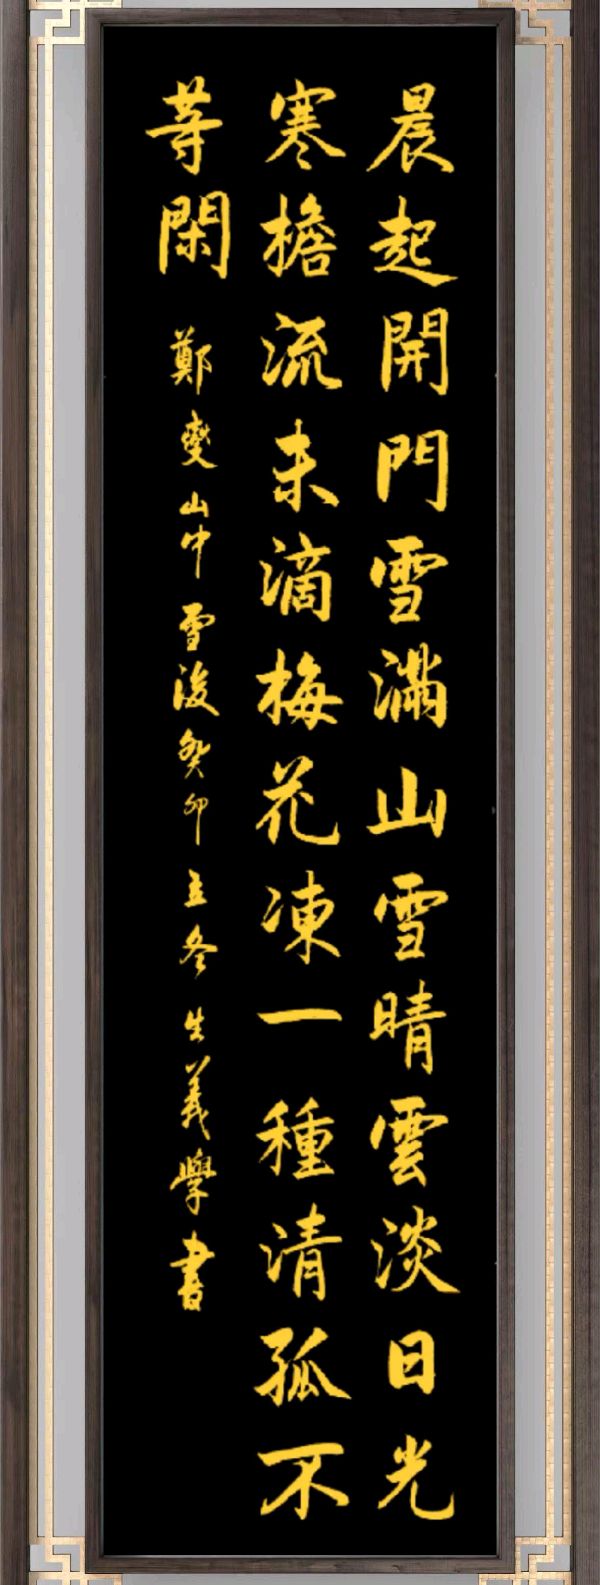 晨起開門雪滿山雪晴雲淡日光
寒檐流未滴梅花凍一種清孤不
等閑
鄭燮山中雪後癸卯立冬生義學書